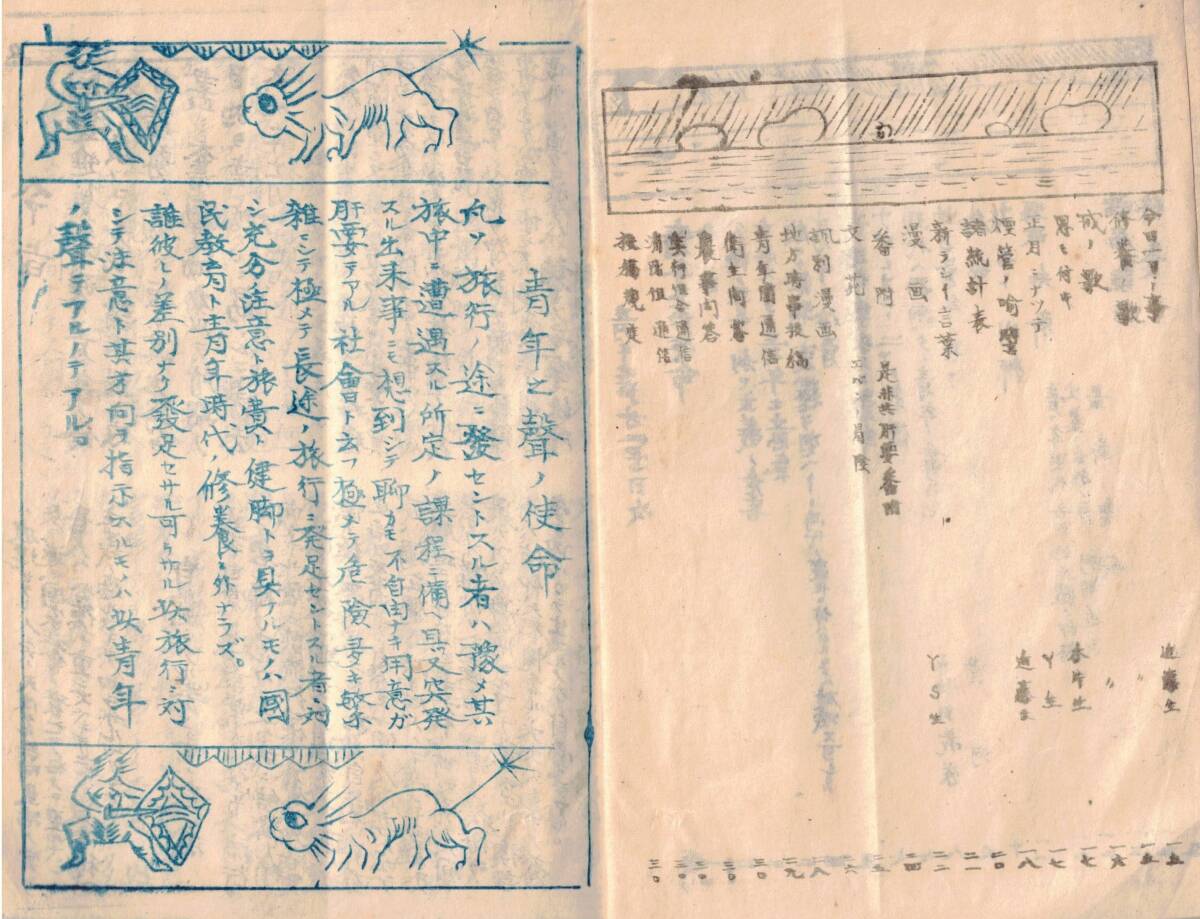 今日一日ノ事 近藤生 一五
修養ノ歌 〃 一五
戒ノ歌 〃 一六
思ヒ付キ 本片生 一七
正月ニナツテ Y生 一七
煙管ノ喩譬 近藤生 一八
諸統計表 二〇
新ラシイ言葉 YS生 二一
漫画 二二
番附 是非共肝要番附 二四
文苑 二五
漫画 二六
地方時事投稿 二八
青年團通信 二九
衛生問答 三〇
農事問答 三〇
実行組合通信 三〇
消防組通信 三〇
投稿規定 三〇
青年之聲ノ使命
凡ソ旅行ノ途ニ發セントスル者ハ豫メ其
旅中ニ遭遇スル所定ノ課程ニ備ヘ具又突発
スル出来事ニモ想到シテ聊カモ不自由ナキ用意ガ
肝要デアル社會ト云フ極メテ危險多キ繁
雑ニシテ極メテ長途ノ旅行ニ発足セントスル者ニ対
シ充分注意ト旅費ト健脚トヲ具フルモノハ國
民教育ト青年時代ノ修養ニ外ナラズ。
誰彼レノ差別ナク發足セサル可ラサル此旅行ニ対
シテ注意ト其方向ヲ指示スルモノハ此青年
ノ聲デアルノデアル。